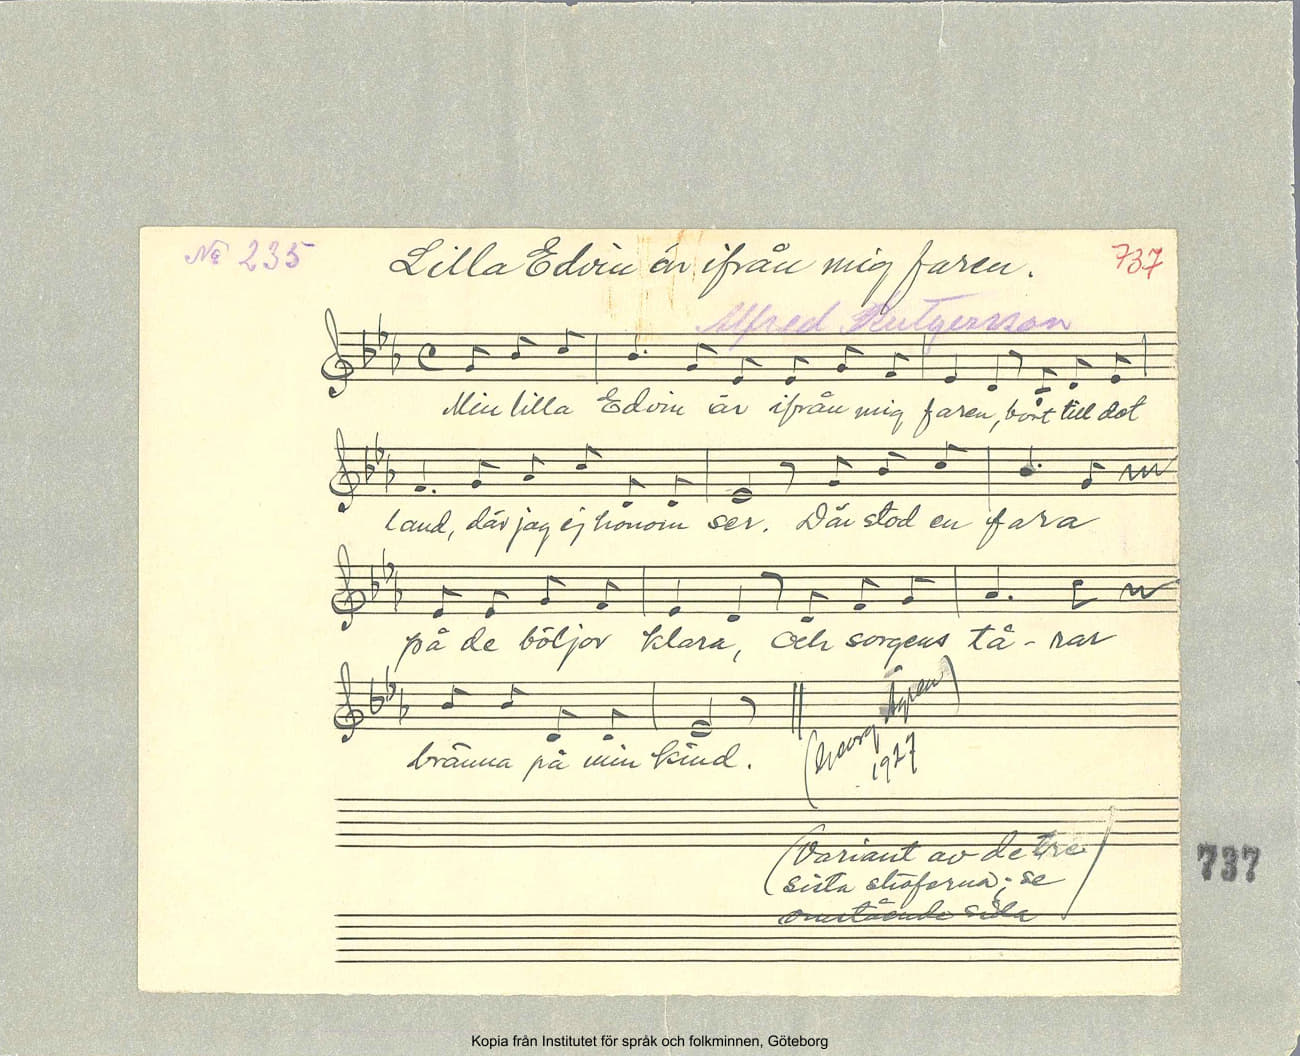 No 235
Lilla Edvin är ifrån mig faren.
737
Alfred Rutgersson
Min lilla Edvin är ifrån mig faren, bort till det
land, där jag ej honom ser. Där stod en fara
på de böljor klara, och sorgens tå-rar
bränna på min kind.
(Georg Ågren)
1927
(Variant av de tre
sista stroferna; se
omstående sida)
737
Kopia från Institutet för språk och folkminnen, Göteborg